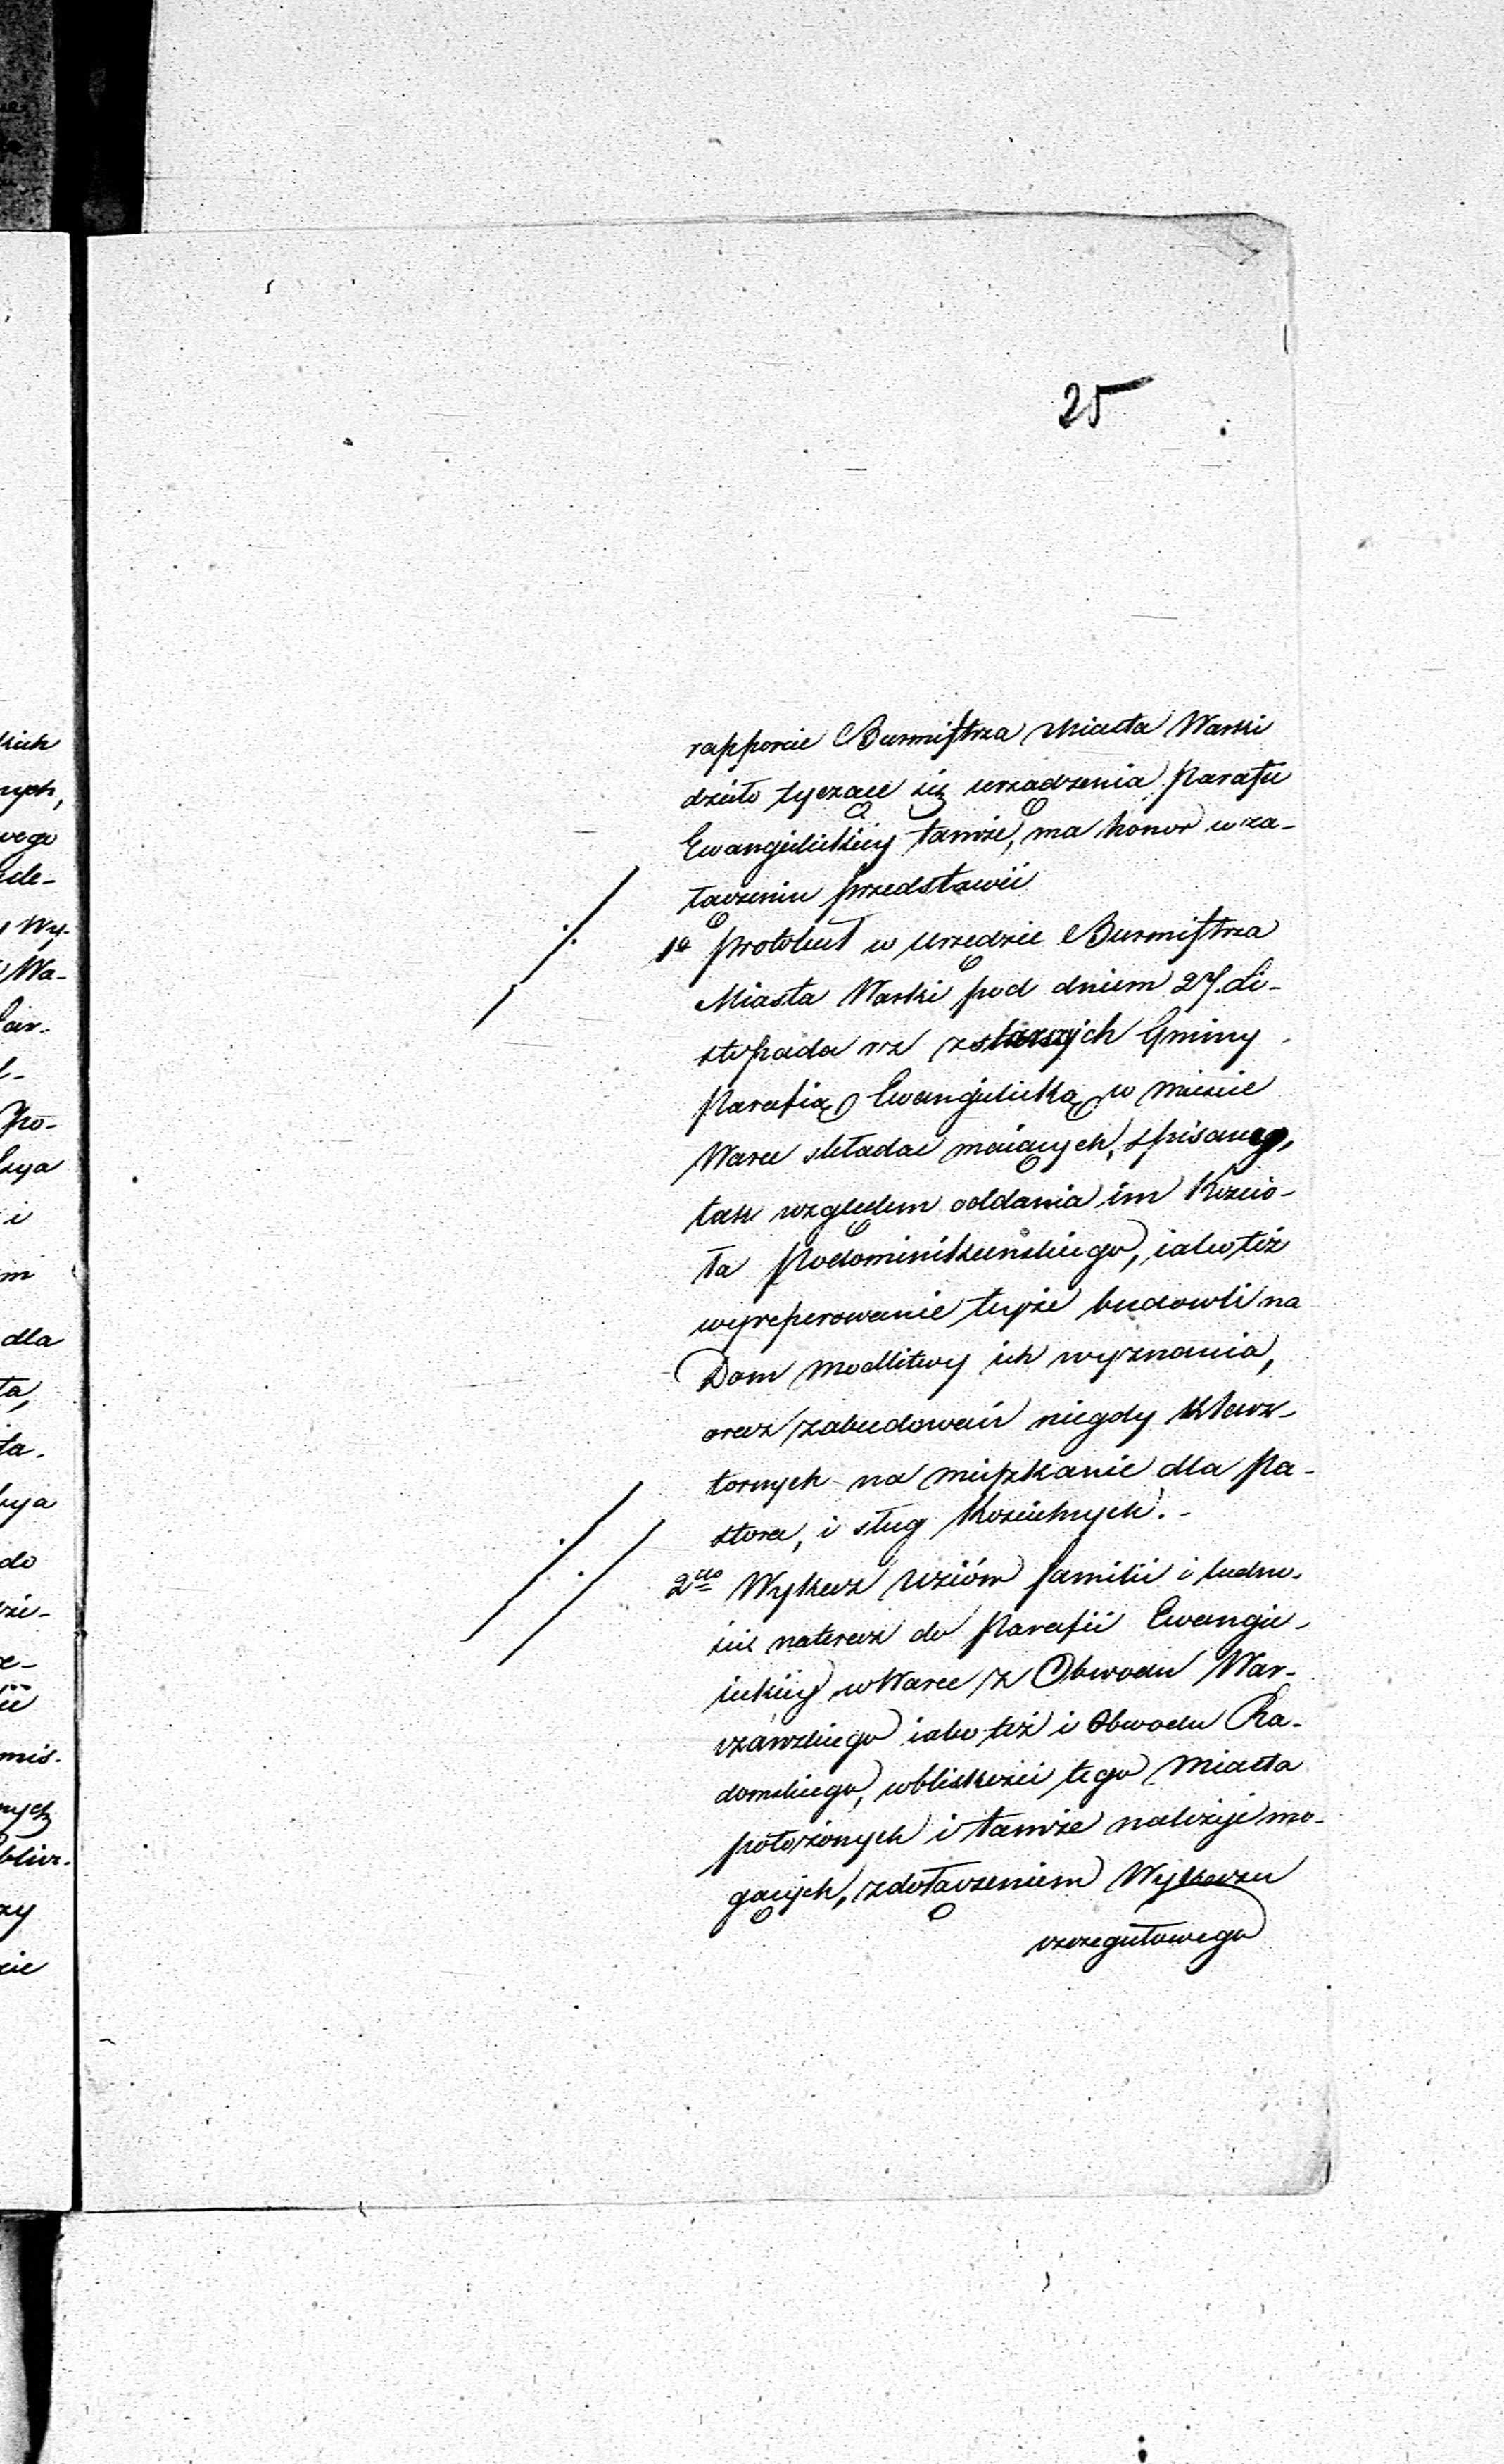 25
rapporcie Burmistrza Miasta Warki
dzieło tyczące się urządzenia Parafii
Ewangielickiey tamże, ma honor w za-
łączeniu przedstawić
1o Protokuł w Urzędzie Burmistrza
Miasta Warki pod dniem 27. Li-
stopada rz starszych Gminy
Parafią Ewangielicką w mieście
Warce składać maiących, spisany,
tak względem oddania im Kościo-
ła Podominikańskiego, iako też
wyreperowanie teyże budowli na
Dom modlitwy ich wyznania,
oraz zabudowań niegdy Klasz-
tornych na mieszkanie dla Pa-
stora, i sług Kościelnych.-
2do Wykaz familii i ludno-
ści na teraz do Parafii Ewangie-
lickiey w Warce z Obwodu War-
szawskiego iako też i Obwodu Ra-
domskiego, w bliskości tego Miasta
położonych i tamże należyć mo-
gących, z dołączeniem Wykazu
szczegułowego